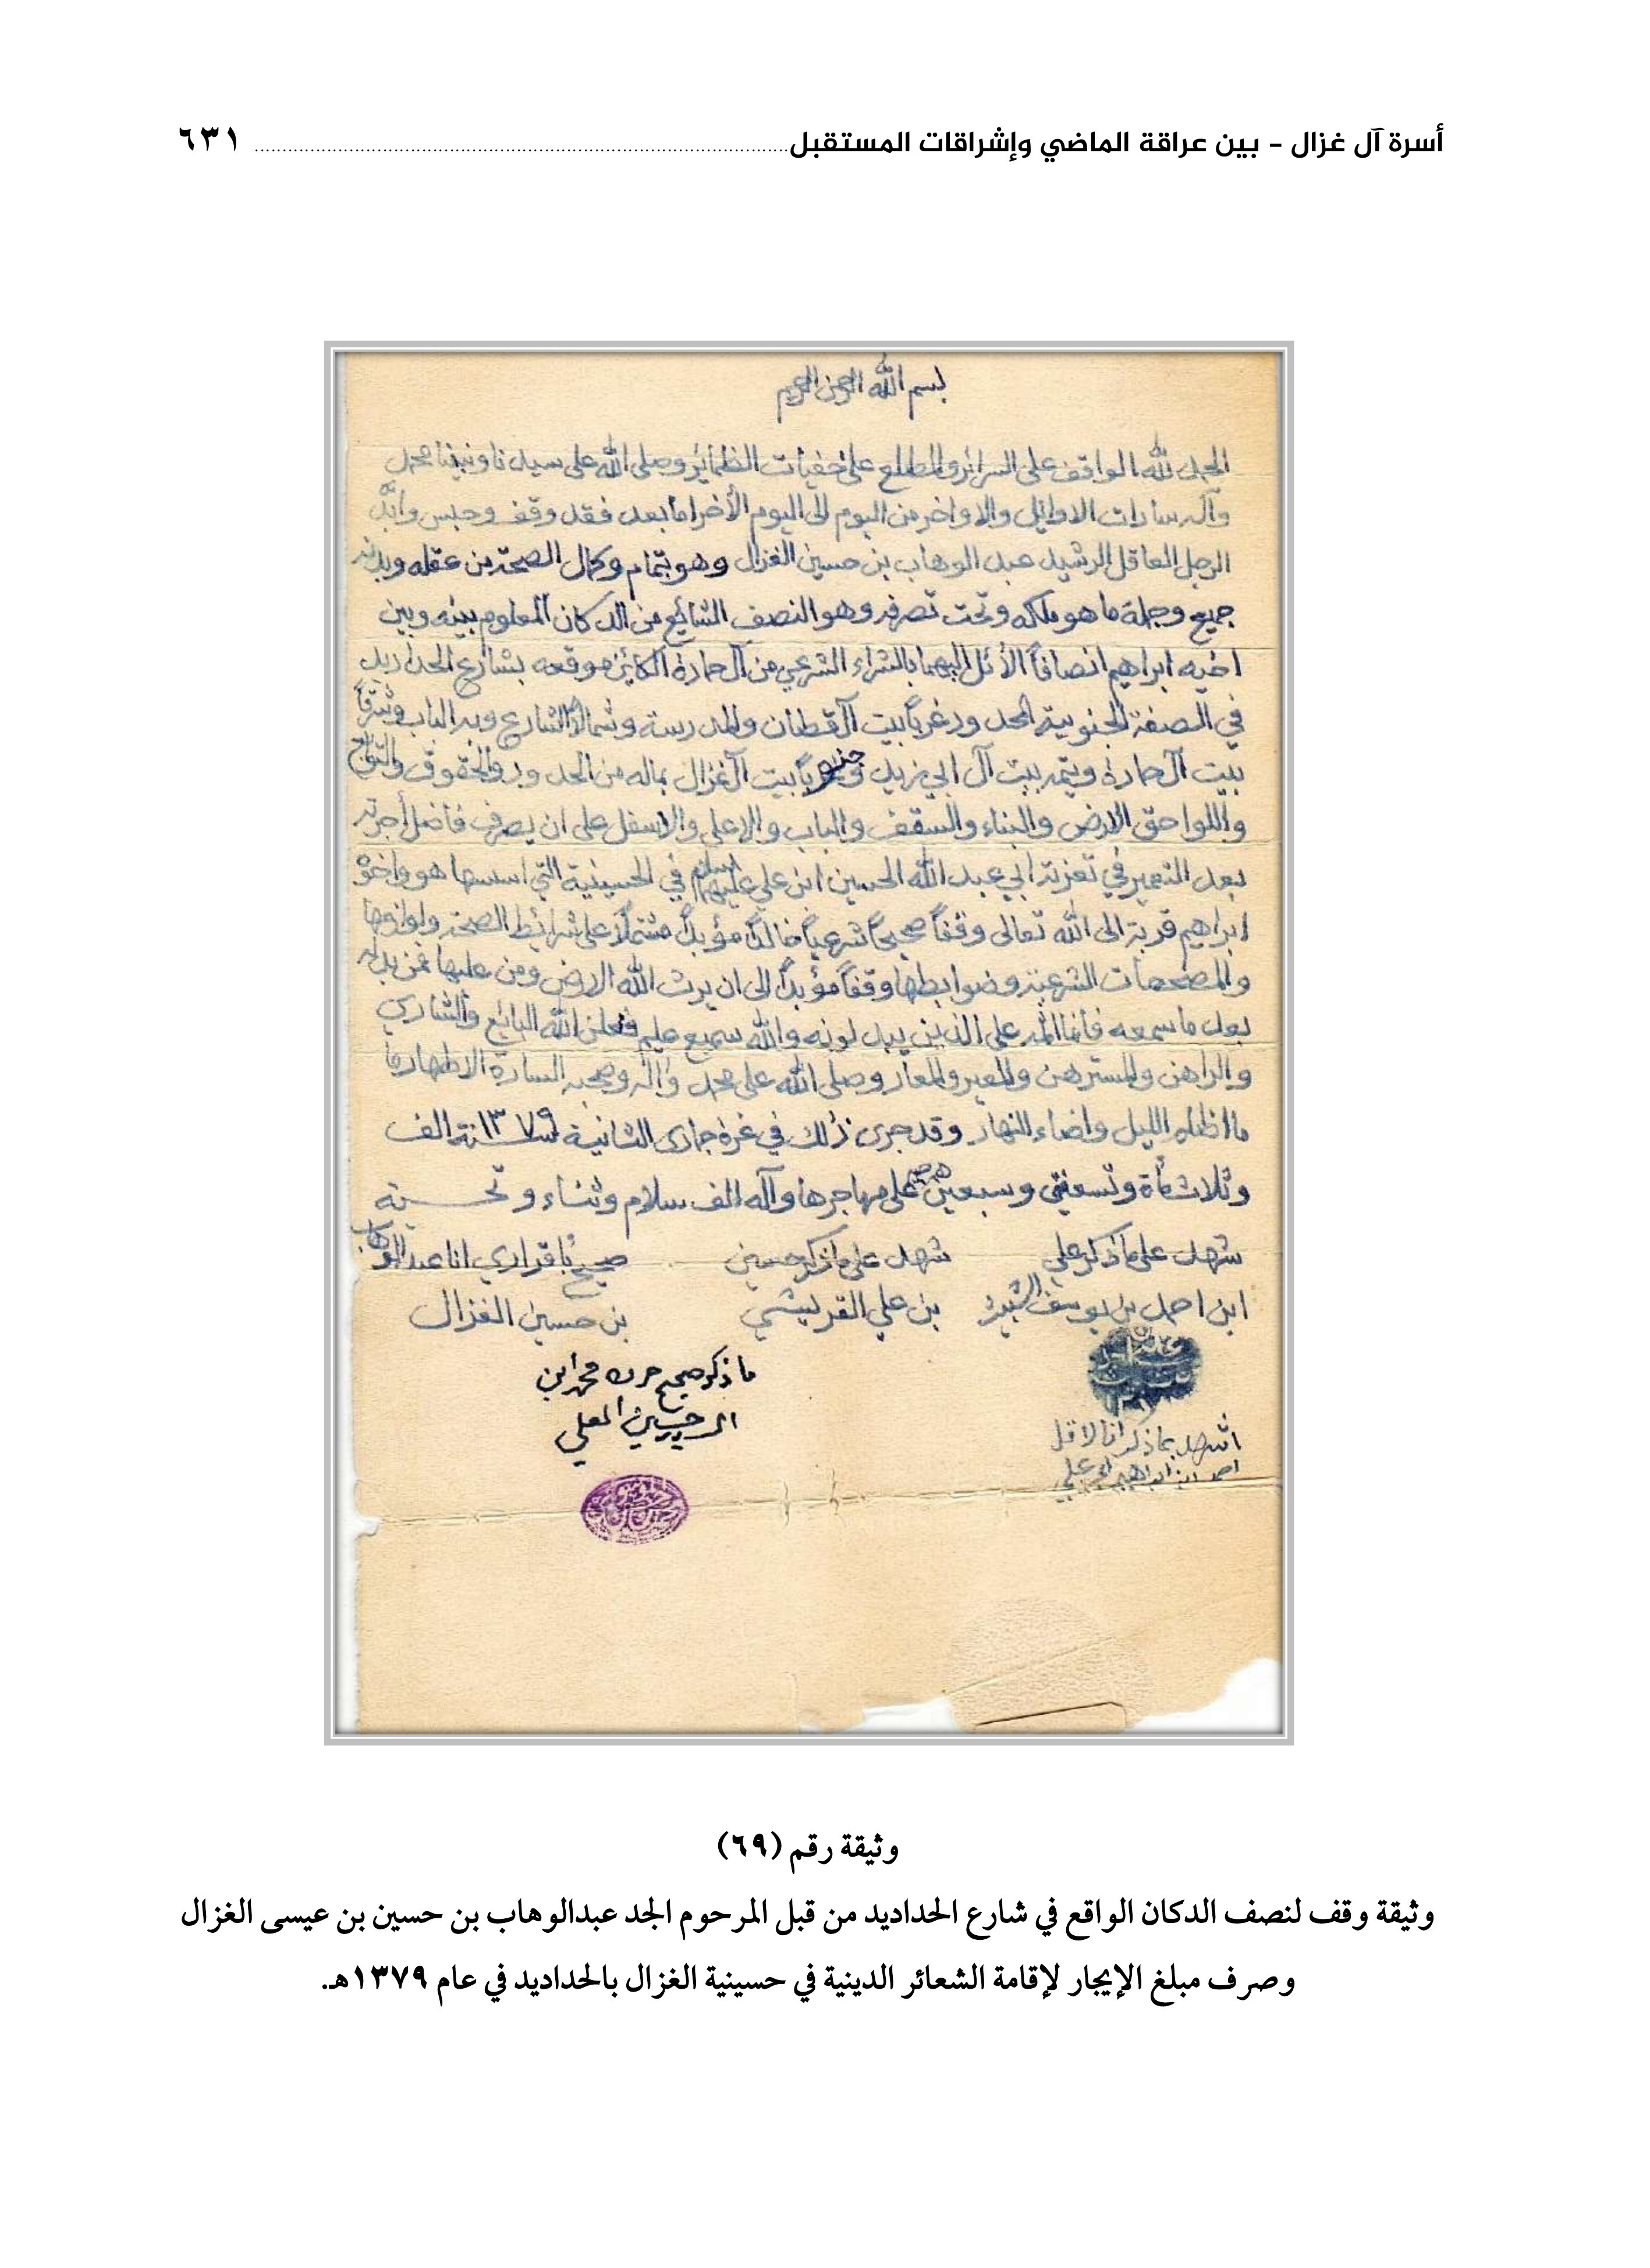 أسرة آل غزال – بين عراقة الماضي وإشراقات المستقبل ٦٣١
بسم الله الرحمن الرحيم
الحمد لله الواقف على السرائر والمطلع على خفيات الظمائر وصلى الله على سيدنا ونبينا محمد
وآله سادات الاوائل والاواخر من اليوم الى اليوم الأخر اما بعد فقد وقف وحبس وأبّد
الرجل العاقل الرشيد عبد الوهاب بن حسين الغزال وهو بتمام وكمال الصحة من عقله وبدنه
جميع وجملة ما هو ملكه وتحت تصرفه وهو النصف الشائع من الدكان المعلوم بينه وبين
اخيه ابراهيم انصافاً الأئل اليهما بالشراء الشرعي من آل حمادة الكائن موقعه بشارع الحداديد
في الصفة الجنوبية المحدود غرباً بيت آل قطان والمدرسة وشمالاً الشارع وبه الباب وشرقاً
بيت آل حمادة ويتمه بيت آل ابي زيد وجنوباً بيت آل غزال بماله من الحدود والحقوق والتوابع
واللواحق الارض والبناء والسقف والباب والاعلى والاسفل على ان يصرف فاضل أجرته
بعد التعمير في تعزية ابي عبد الله الحسين ابن علي عليهما السلام في الحسينية التي اسسها هو واخوه
ابراهيم قربة الى الله تعالى وقفاً صحيحاً شرعياً خالداً مؤبداً مشتملاً على شرائط الصحة ولوازمها
والمصححات الشرعية وضوابطها وقفاً مؤبداً الى ان يرث الله الارض ومن عليها فمن بدله
بعد ما سمعه فانما اثمه على الذين يبدلونه والله سميع عليم فلعن الله البائع والشاري
والراهن والمسترهن والمعير والمعار وصلى الله على محمد وآله وصحبه السادة الاطهار ما
ما اظلم الليل واضاء النهار وقد جرى ذلك في غرة جمادى الثانية لسنة ١٣٧٩ الف
وثلاثمأة وتسعة وسبعين هجرية على مهاجرها وآله الف سلام وثناء وتحية
شهد على ما ذكر علي شهد على ما ذكر حسين صحيح باقراري انا عبد الوهاب
ابن احمد بن يوسف بن علي القريشي بن حسين الغزال
ما ذكر صحيح حرره محمد ابن
الحسين العلي
اشهد بما ذكر انا الاقل
احمد ابن ابراهيم
وثيقة رقم (٦٩)
وثيقة وقف لنصف الدكان الواقع في شارع الحداديد من قبل المرحوم الجد عبدالوهاب بن حسين بن عيسى الغزال
وصرف مبلغ الإيجار لإقامة الشعائر الدينية في حسينية الغزال بالحداديد في عام ١٣٧٩هـ.